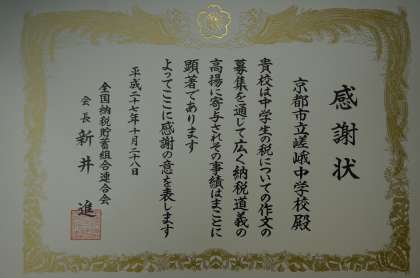 感謝状
京都市立嵯峨中学校殿
貴校は中学生の税についての作文の
募集を通じて広く納税道義の
高揚に寄与されその事績はまことに
顕著であります
よってここに感謝の意を表します
平成二十七年十月二十八日
全国納税貯蓄組合連合会
会長 新井 進